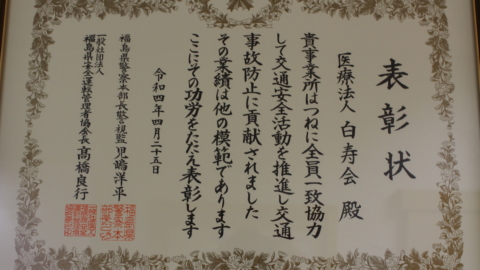 表彰状
医療法人 白寿会 殿
貴事業所はつねに全員一致協力
して交通安全活動を推進し交通
事故防止に貢献されました
その業績は他の模範であります
ここにその功労をたたえ表彰します
令和四年四月二十五日
福島県警察本部長警視監 児嶋洋平
一般社団法人
福島県安全運転管理者協会会長 髙橋良行